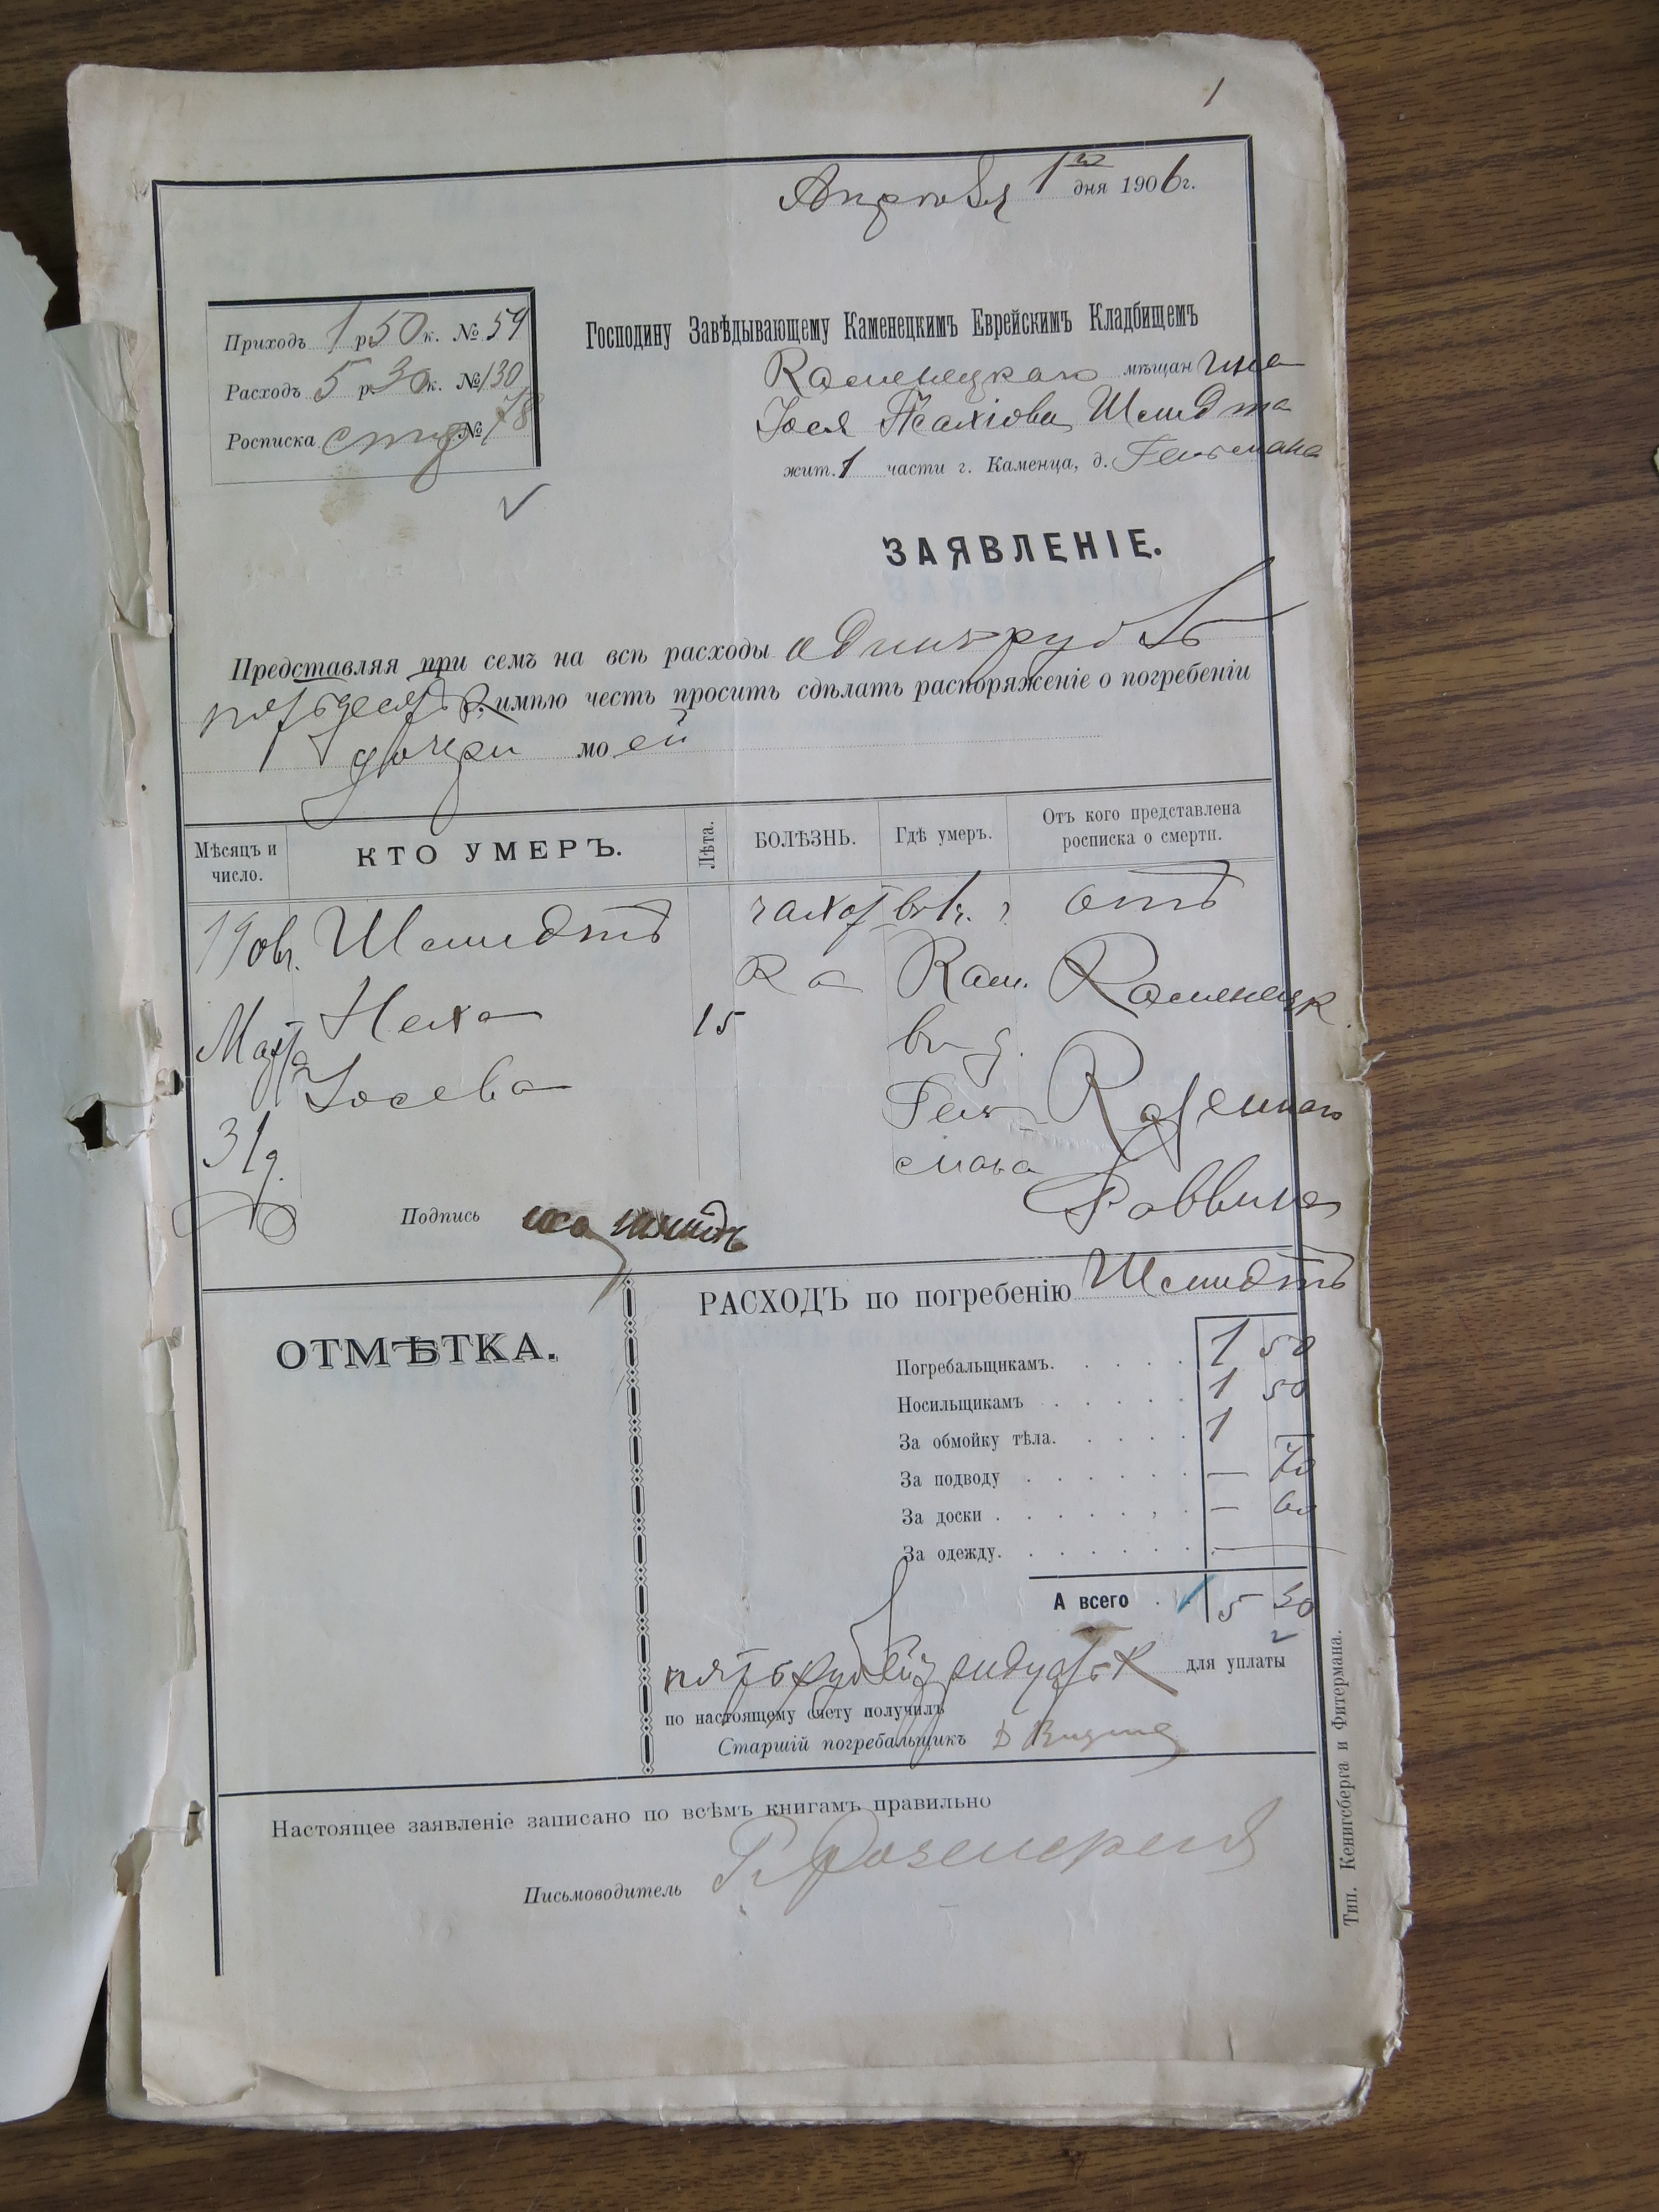 1
Апрѣля 1го дня 1906 г.
Приходъ 1 р 50 к. № 59
Расходъ 5 р. 30 к. № 130
Росписка № 78
Господину Завѣдывающему Каменецкимъ Еврейскимъ Кладбищемъ
Каменецкаго мѣщанина
Іося Шмидта
жит. 1 части г. Каменца, д. Гельмана
ЗАЯВЛЕНІЕ.
Представляя при семъ на всѣ расходы одинъ рубль
пятьдесятъ к, имѣю честь просить сдѣлать распоряженіе о погребеніи
дочери моей
Мѣсяцъ и число.
КТО УМЕРЪ.
Лѣта.
БОЛѢЗНЬ.
Гдѣ умеръ.
Отъ кого представлена росписка о смерти.
190 г. Шмидтъ чахот въ г. отъ
Неха 15 ка Кам. Каменецк.
Марта Іосева въ д. Казеннаго
31 д. Гельмана Раввина
Подпись
ОТМѢТКА.
РАСХОДЪ по погребенію Шмидтъ
Погребальщикамъ. 1 50
Носильщикамъ 1 50
За обмойку тѣла. 1 —
За подводу — 70
За доски — 60
За одежду. —
А всего 5 30
пять рублей тридцать к для уплаты
по настоящему счету получилъ
Старшій погребальщикъ
Настоящее заявленіе записано по всѣмъ книгамъ правильно
Письмоводитель
Тип. Кенигсберга и Фитермана.